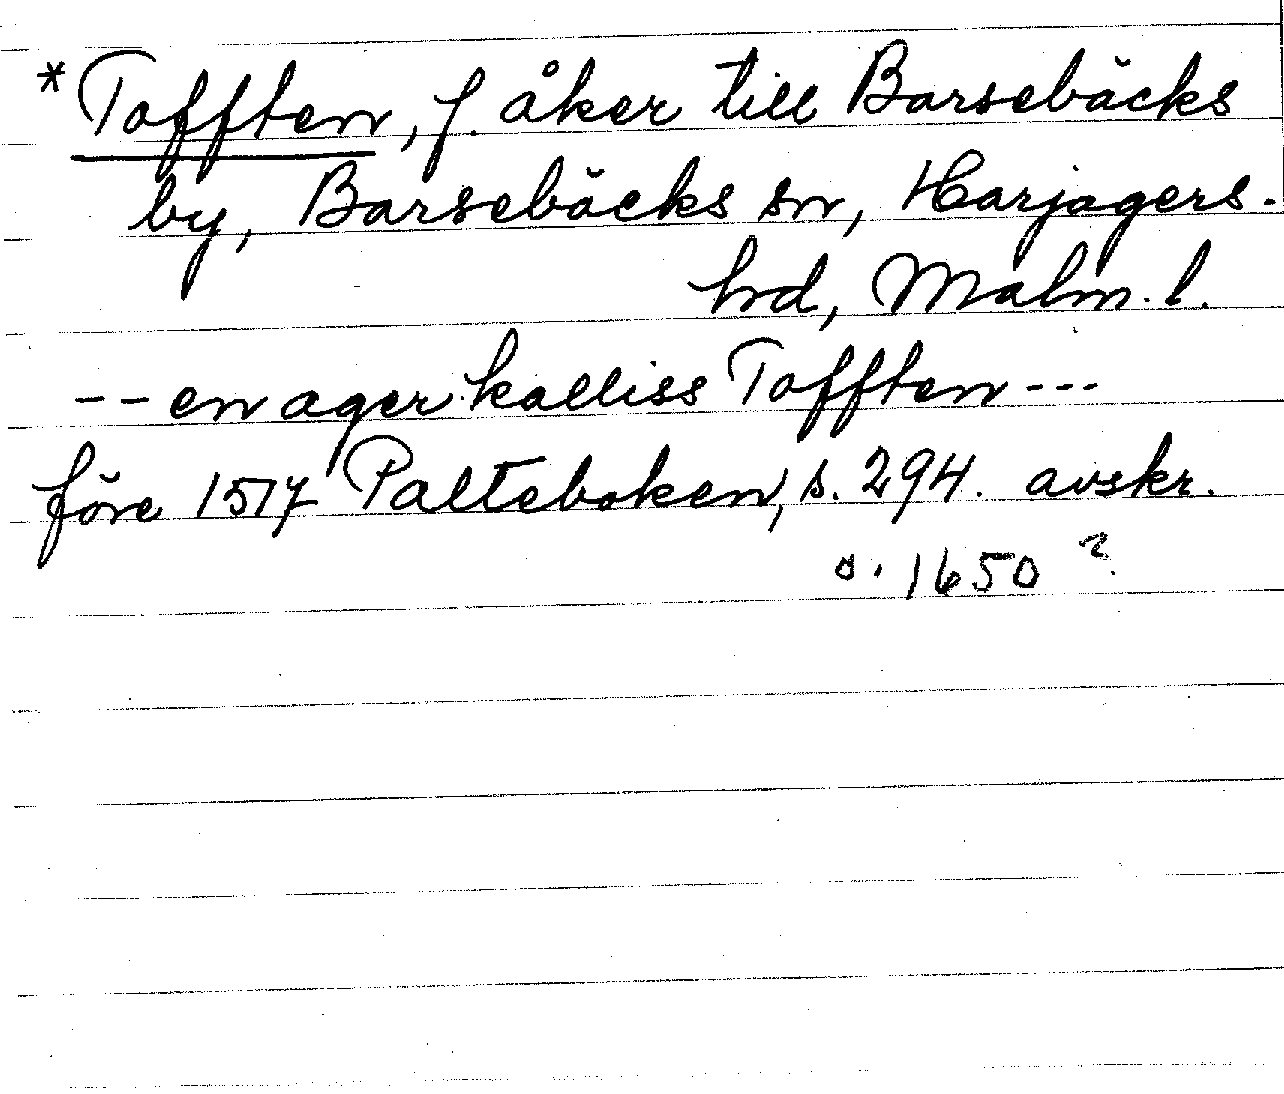 *Tofften, f. åker till Barsebäcks
by, Barsebäcks sn, Harjagers.
hrd, Malm. l.
-- en ager kalliss Tofften ---
före 1517 Palteboken, s. 294. avskr.
o. 1650 ?